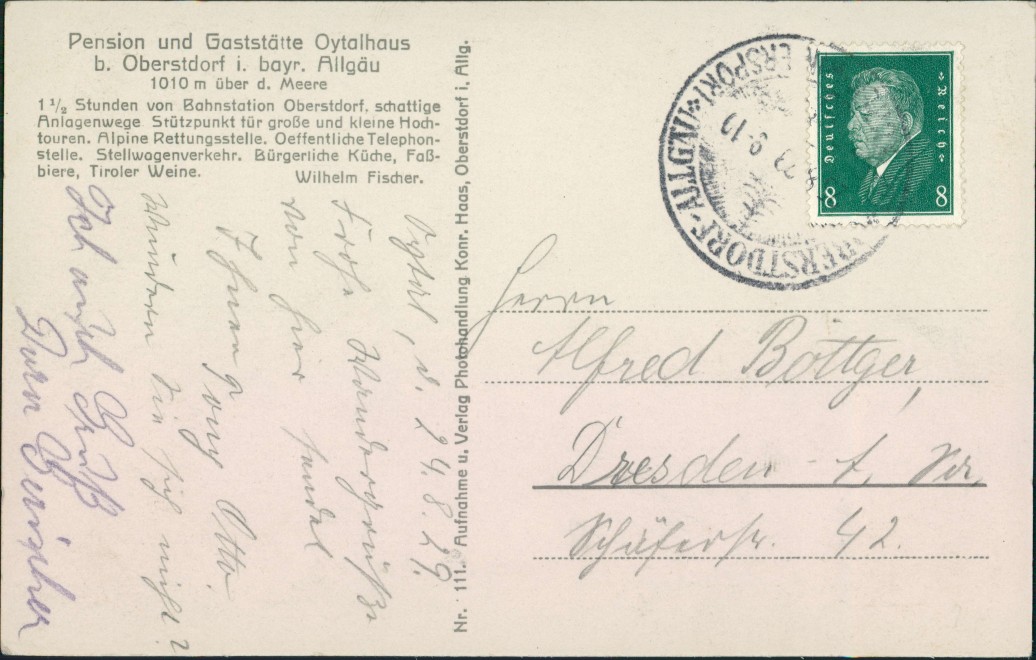 Pension und Gaststätte Oytalhaus
b. Oberstdorf i. bayr. Allgäu
1010 m über d. Meere
1 1/2 Stunden von Bahnstation Oberstdorf, schattige
Anlagenwege Stützpunkt für große und kleine Hoch-
touren. Alpine Rettungsstelle. Oeffentliche Telephon-
stelle. Stellwagenverkehr. Bürgerliche Küche, Faß-
biere, Tiroler Weine.
Wilhelm Fischer.
Oytal, d. 24.8.29.
Frohe Wandergrüße
von hier sendet
Ihnen Otto.
Wundern Sie sich nicht?
Gruß
Nr. 111. Aufnahme u. Verlag Photohandlung Konr. Haas, Oberstdorf i. Allg.
OBERSTDORF-ALLGÄU
Deutsches Reich
8 8
Herrn
Alfred Bottger,
Dresden
Schäferstr. 42.